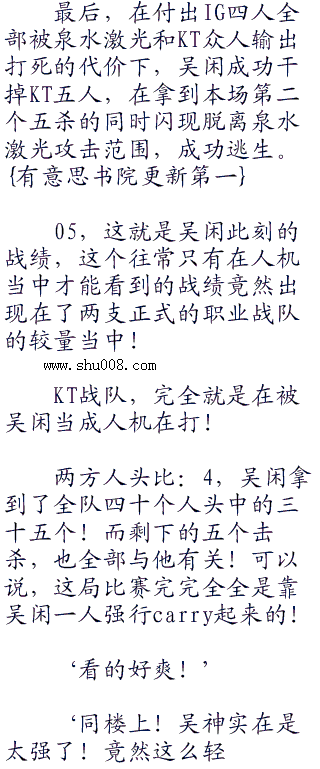 最后，在付出IG四人全
部被泉水激光和KT众人输出
打死的代价下，吴闲成功干
掉KT五人，在拿到本场第二
个五杀的同时闪现脱离泉水
激光攻击范围，成功逃生。
{有意思书院更新第一}
05，这就是吴闲此刻的
战绩，这个往常只有在人机
当中才能看到的战绩竟然出
现在了两支正式的职业战队
的较量当中！
www.shu008.com
KT战队，完全就是在被
吴闲当成人机在打！
两方人头比：4，吴闲拿
到了全队四十个人头中的三
十五个！而剩下的五个击
杀，也全部与他有关！可以
说，这局比赛完完全全是靠
吴闲一人强行carry起来的！
‘看的好爽！’
‘同楼上！吴神实在是
太强了！竟然这么轻